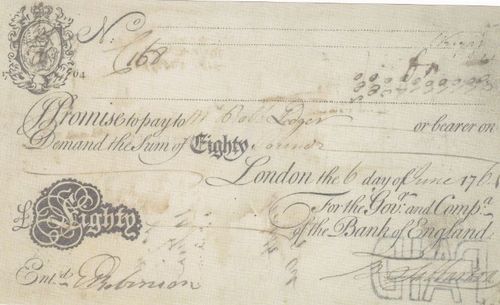 No. C168
I Promise to pay to Mr Robt Ledger or bearer on
Demand the Sum of Eighty Pounds
London the 6 day of June 176
£ Eighty
For the Govr. and Compa.
of the Bank of England.
Entd. Robinson